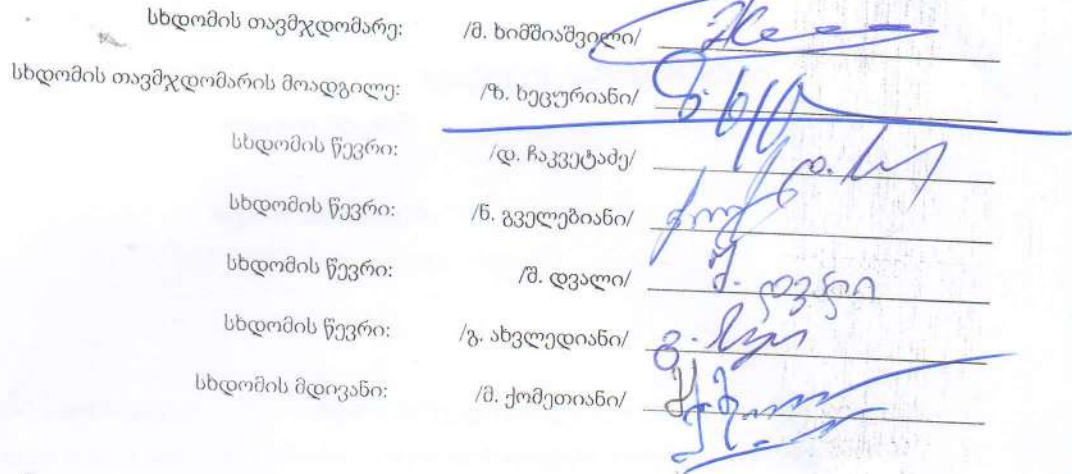 სხდომის თავმჯდომარე: /მ. ხიმშიაშვილი/
სხდომის თავმჯდომარის მოადგილე: /ზ. ხეცურიანი/
სხდომის წევრი: /დ. ჩაკვეტაძე/
სხდომის წევრი: /ნ. გველებიანი/
სხდომის წევრი: /შ. დვალი/ შ. დვალი
სხდომის წევრი: /გ. ახვლედიანი/
სხდომის მდივანი: /მ. ქომეთიანი/